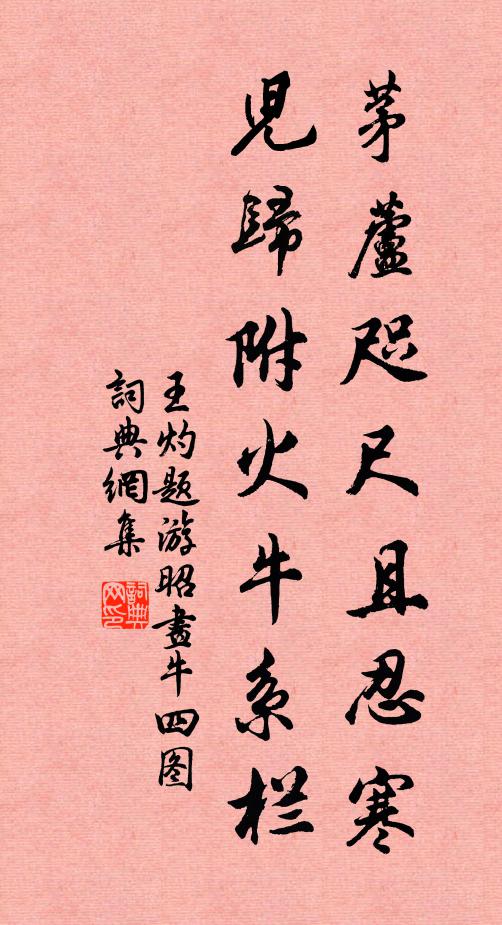 茅蘆咫尺且忍寒
兒歸附火牛系栏
王灼题游昭畫牛四图
詞典網集
詞典网印